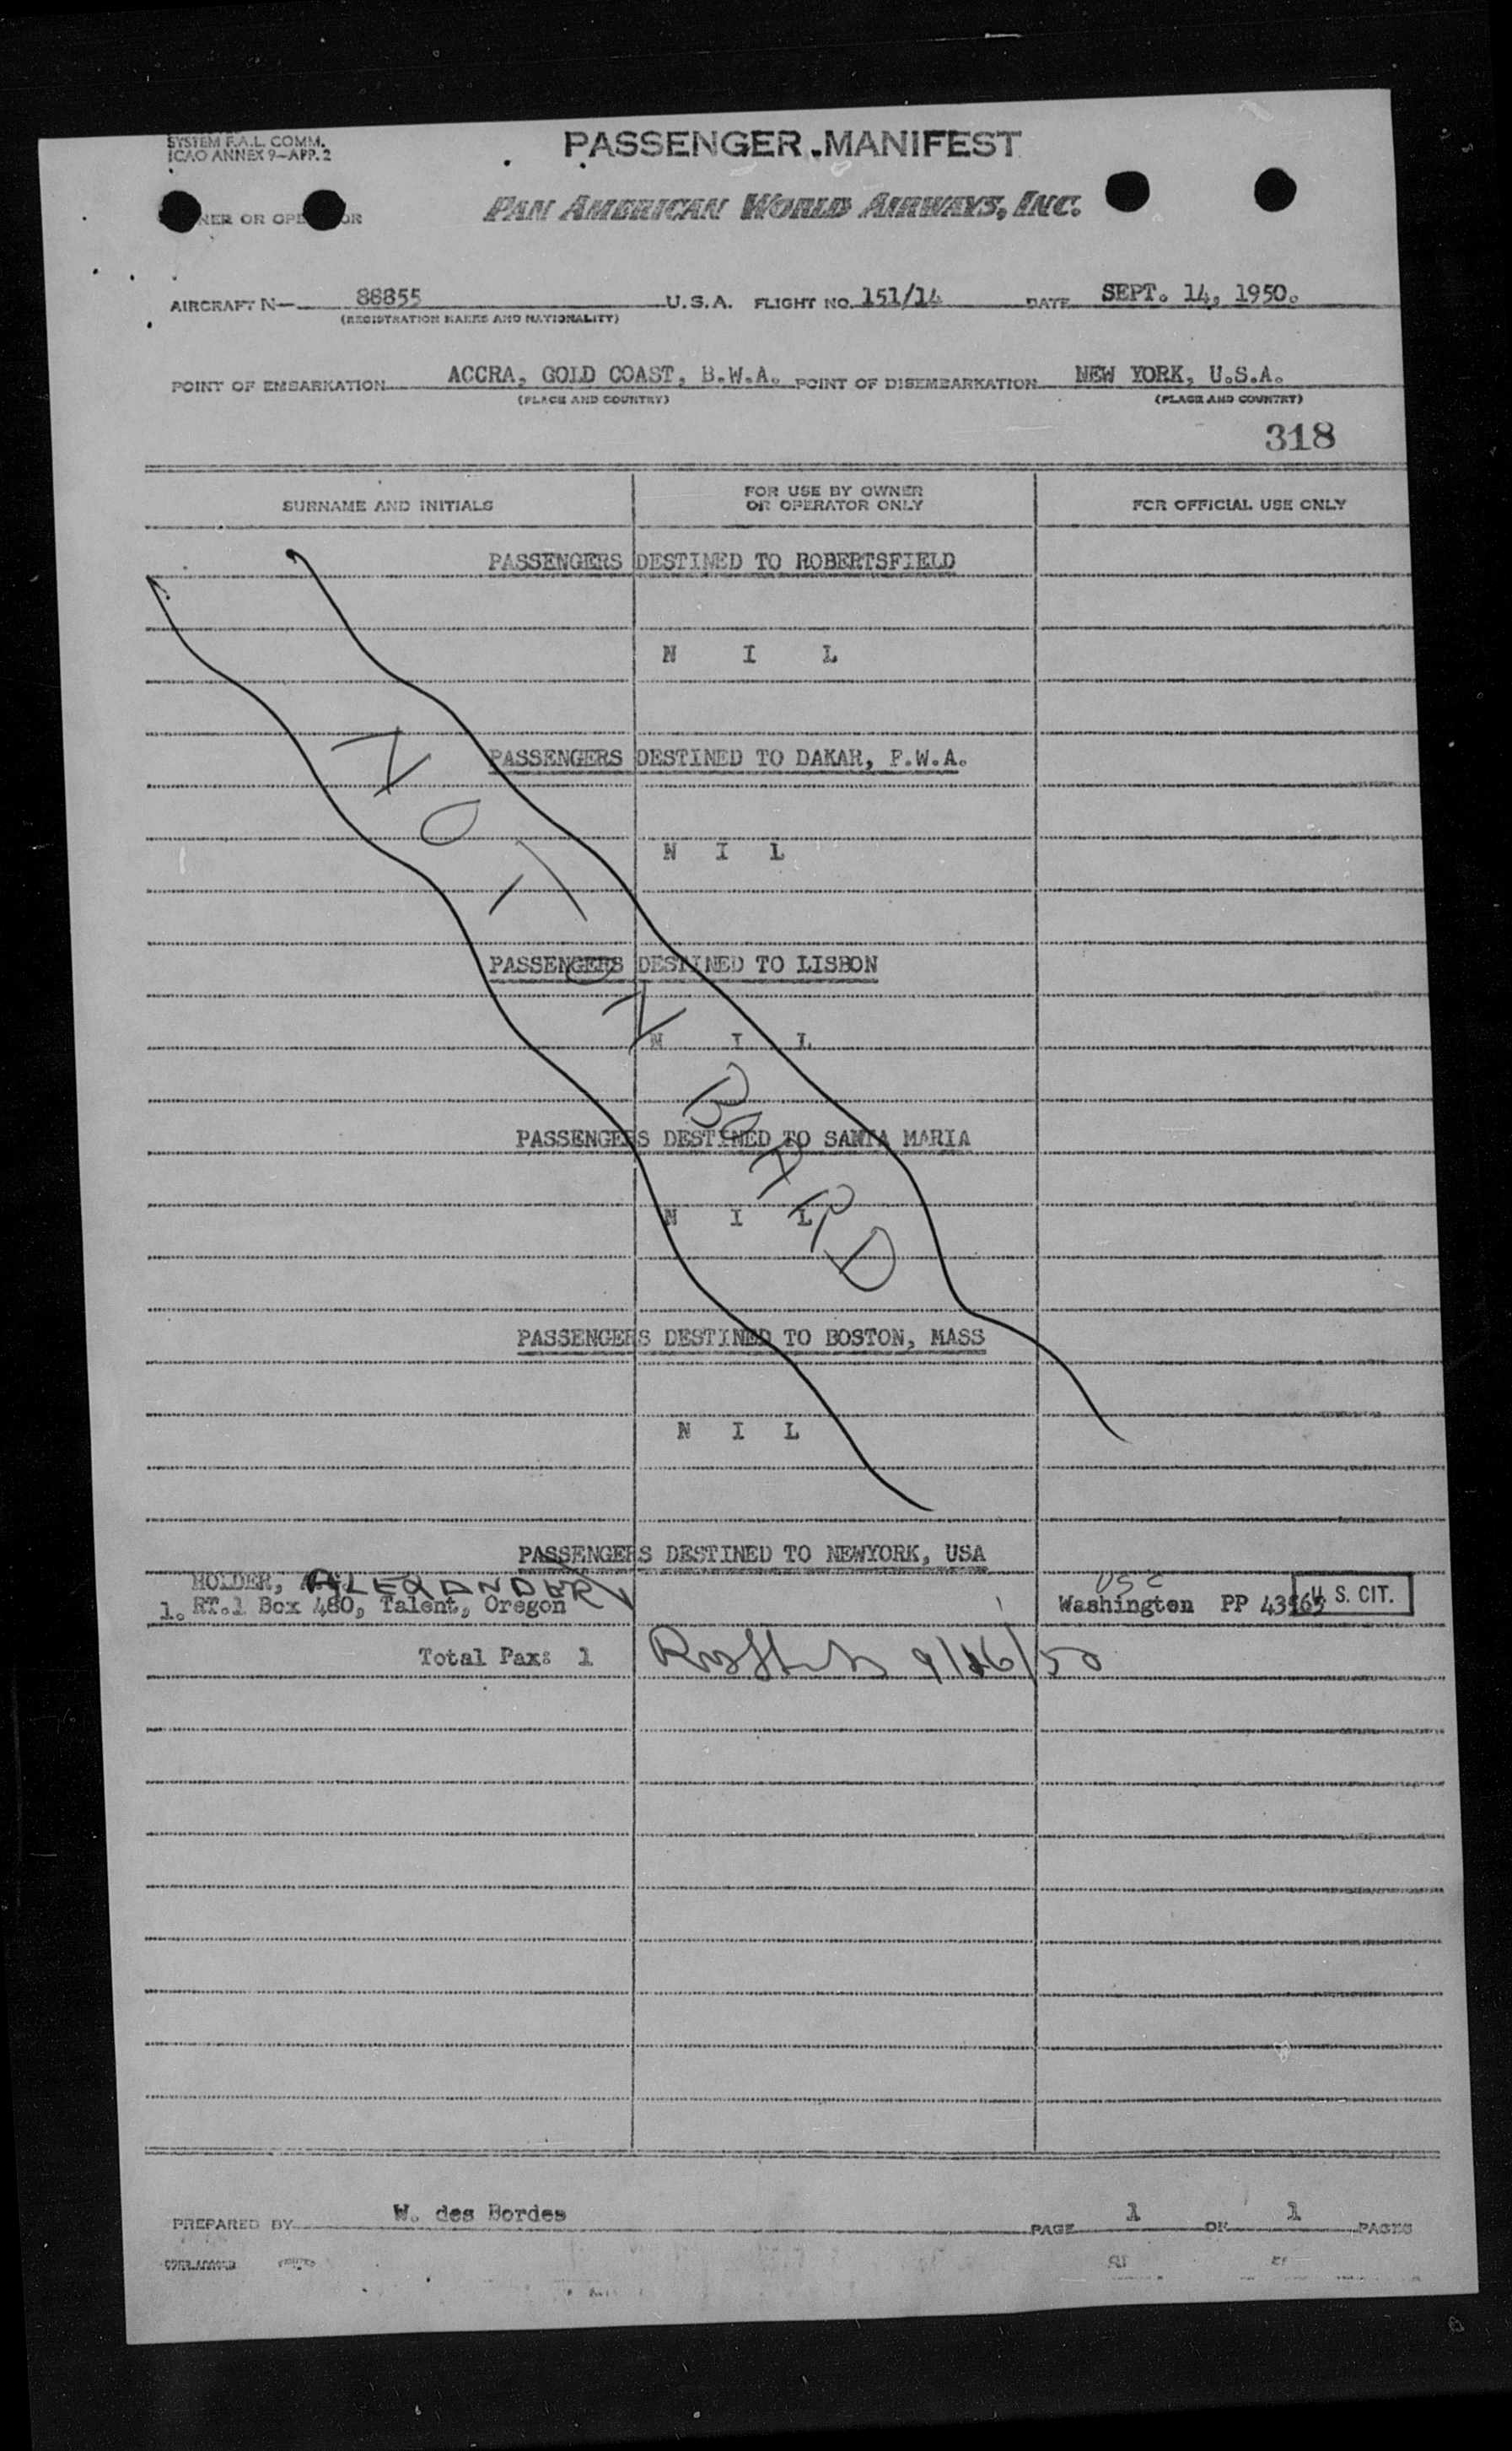 SYSTEM F.A.L. COMM.
ICAO ANNEX 9—APP. 2
PASSENGER MANIFEST
OR
PAN AMERICAN WORLD AIRWAYS, INC.
AIRCRAFT N— 88855 U.S.A. FLIGHT NO. 151/14 DATE SEPT. 14, 1950.
(REGISTRATION MARKS AND NATIONALITY)
POINT OF EMBARKATION ACCRA, GOLD COAST, B.W.A. POINT OF DISEMBARKATION NEW YORK, U.S.A.
(PLACE AND COUNTRY) (PLACE AND COUNTRY)
318
SURNAME AND INITIALS FOR USE BY OWNER OR OPERATOR ONLY FOR OFFICIAL USE ONLY
PASSENGERS DESTINED TO ROBERTSFIELD
N I L
PASSENGERS DESTINED TO DAKAR, F.W.A.
N I L
NOT ON BOARD
PASSENGERS DESTINED TO LISBON
N I L
PASSENGERS DESTINED TO SANTA MARIA
N I L
PASSENGERS DESTINED TO BOSTON, MASS
N I L
PASSENGERS DESTINED TO NEWYORK, USA
ALEXANDER USC
1. RT.1 Box 480, Talent, Oregon Washington PP U S. CIT.
Total Pax: 1 9/16/50
PREPARED BY W. des Bordes PAGE 1 OF 1 PAGES